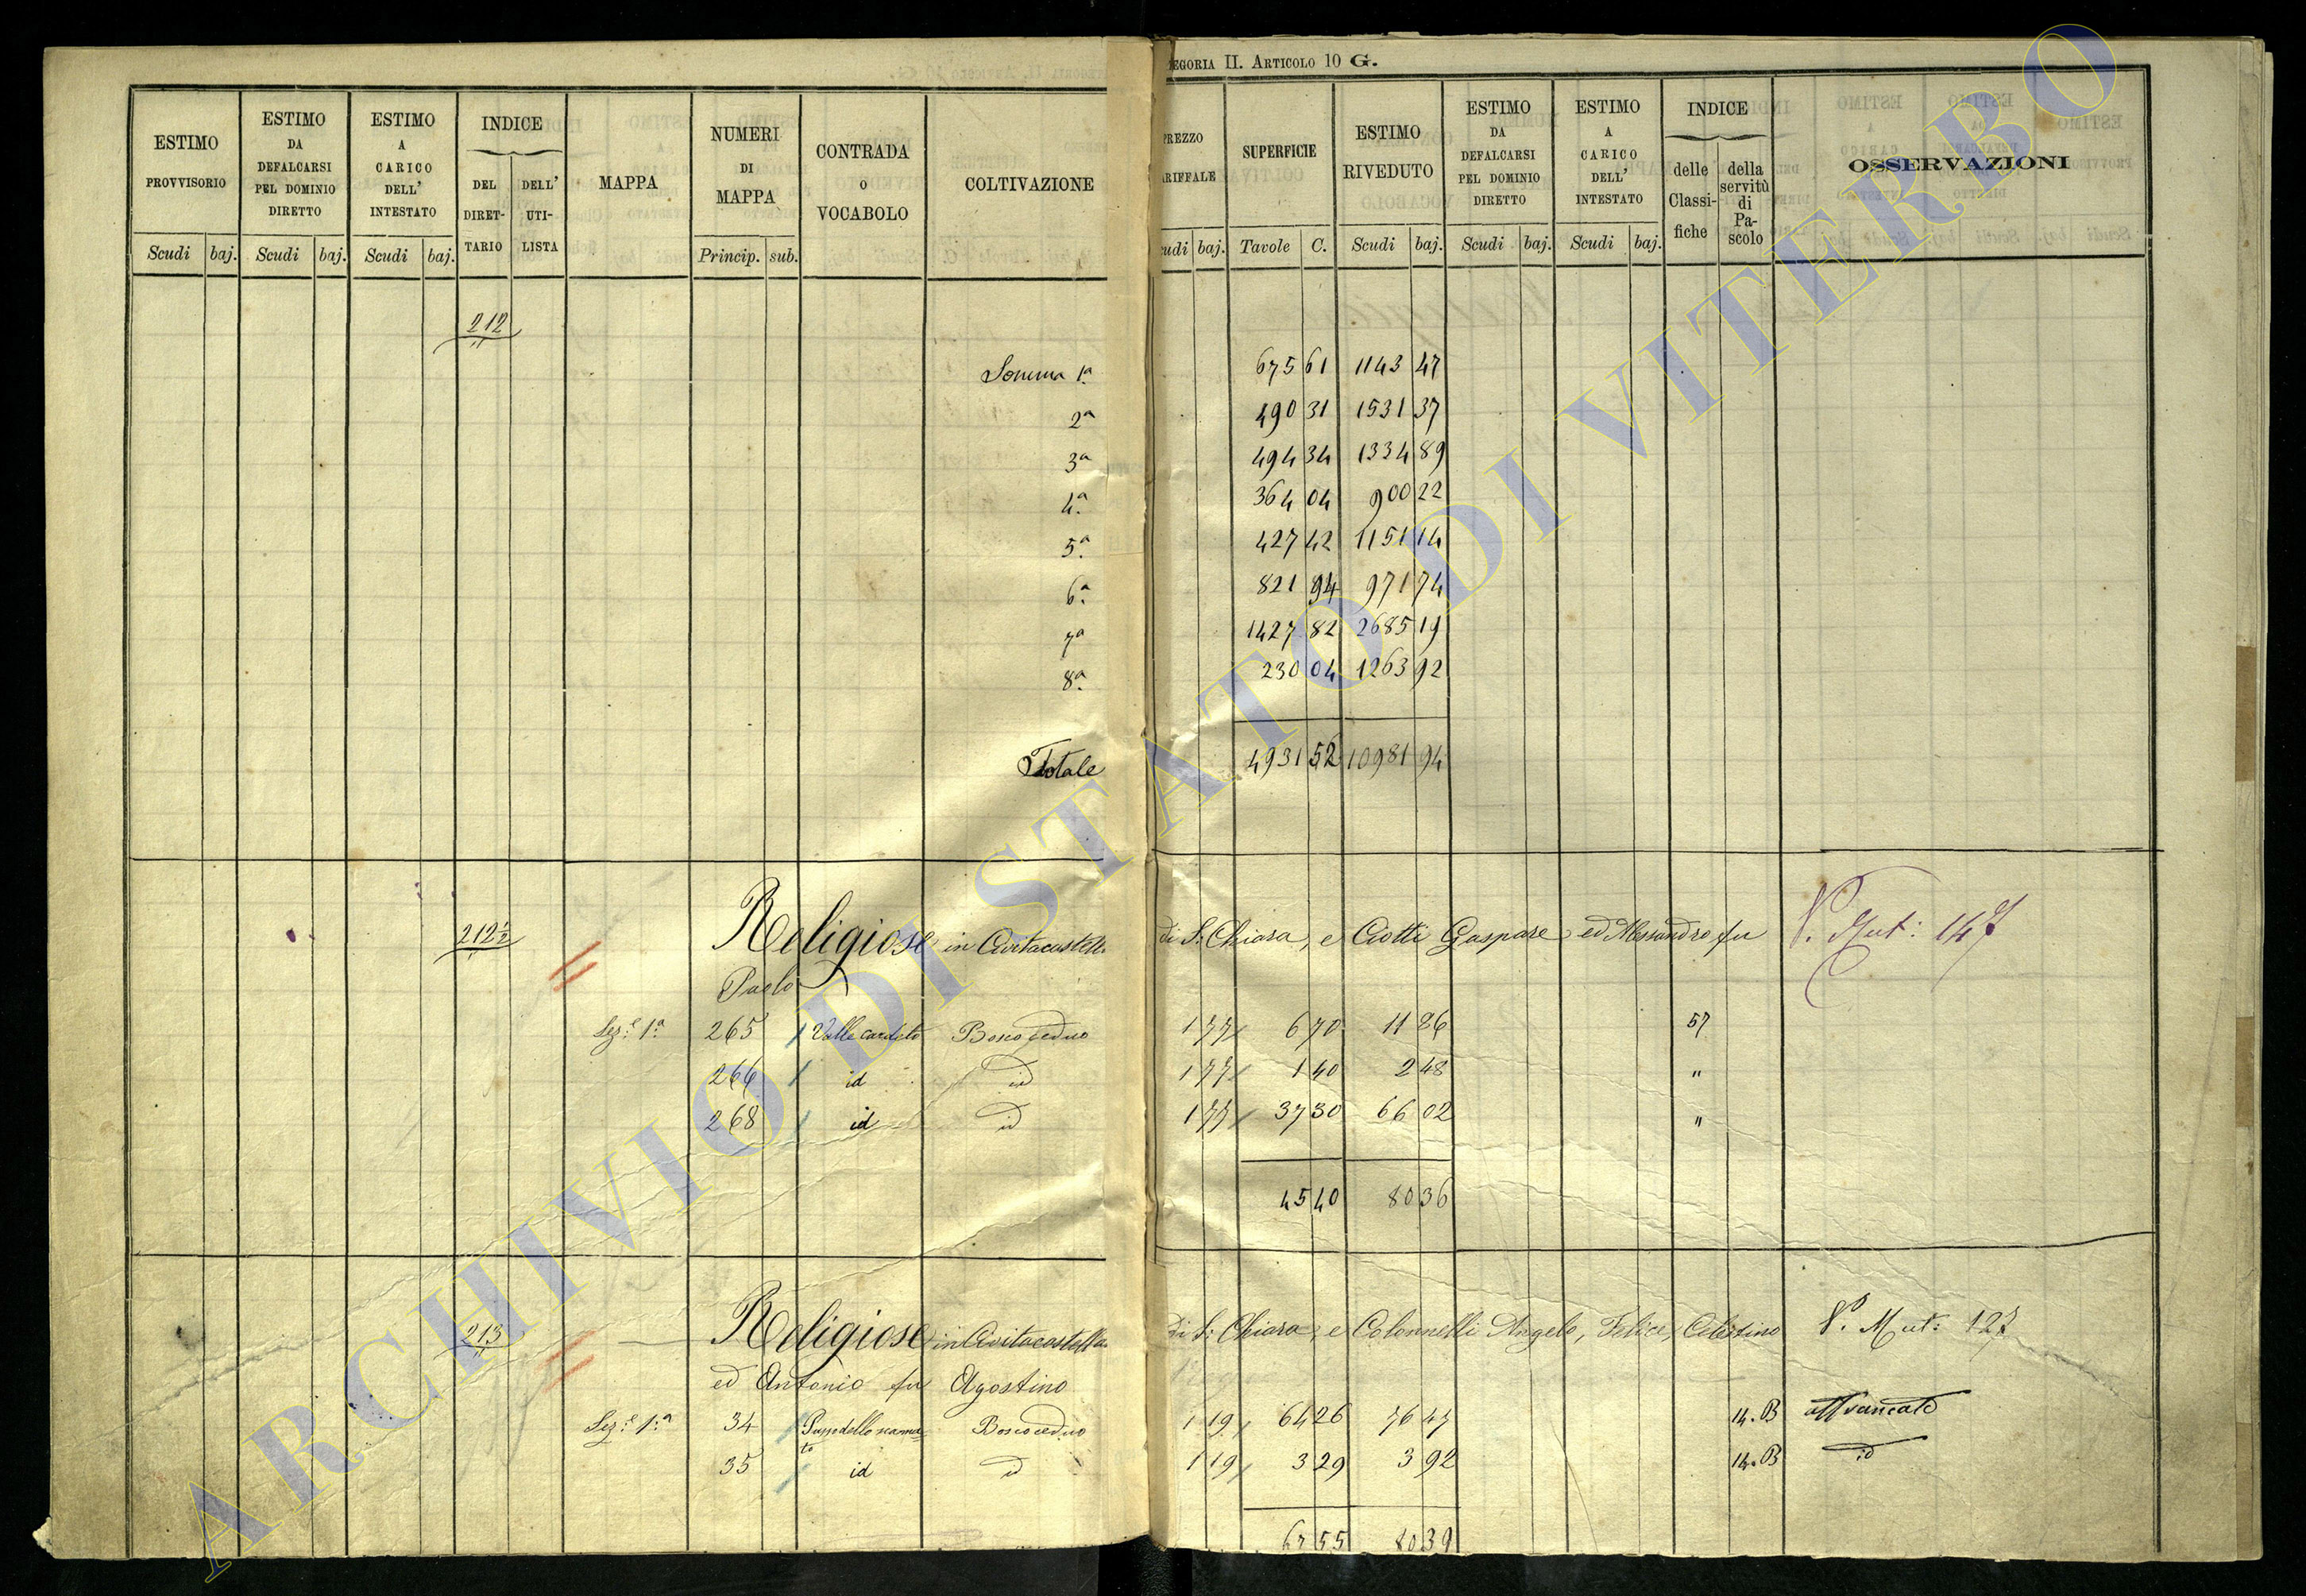 CATEGORIA II. ARTICOLO 10 G.
ESTIMO PROVVISORIO Scudi baj.
ESTIMO DA DEFALCARSI PEL DOMINIO DIRETTO Scudi baj.
ESTIMO A CARICO DELL' INTESTATO Scudi baj.
INDICE DEL DIRET-TARIO DELL' UTI-LISTA
MAPPA
NUMERI DI MAPPA Princip. sub.
CONTRADA O VOCABOLO
COLTIVAZIONE
PREZZO TARIFFALE Scudi baj.
SUPERFICIE Tavole C.
ESTIMO RIVEDUTO Scudi baj.
ESTIMO DA DEFALCARSI PEL DOMINIO DIRETTO Scudi baj.
ESTIMO A CARICO DELL' INTESTATO Scudi baj.
INDICE delle Classi-fiche della servitù di Pa-scolo
OSSERVAZIONI
212
Somma 1ª 675 61 1143 47
2ª 490 31 1531 37
3ª 494 34 1334 89
4ª 364 04 900 22
5ª 427 42 1151 14
6ª 821 94 971 74
7ª 1427 82 2685 19
8ª 230 04 1263 92
Totale 4931 52 10981 94
212½ Religiose in Civitacastell. di S. Chiara, e Ciotti Gaspare ed Alessandro fu V. Mut: 147
Paolo
Sez.e 1ª 265 Valle cardeto Bosco ceduo 1 77 6 70 11 86 57
266 id id 1 77 1 40 2 48 "
268 id id 1 77 37 30 66 02 "
45 40 80 36
213 Religiose in Civitacastella. di S. Chiara, e Colonnelli Angelo, Felice, Celestino V. Mut: 127
ed Antonio fu Agostino
Sez.e 1ª 34 Bosco ceduo 1 19 64 26 76 47 14. B affrancato
35 id id 1 19 3 29 3 92 14. B id
67 55 80 39
ARCHIVIO DI STATO DI VITERBO